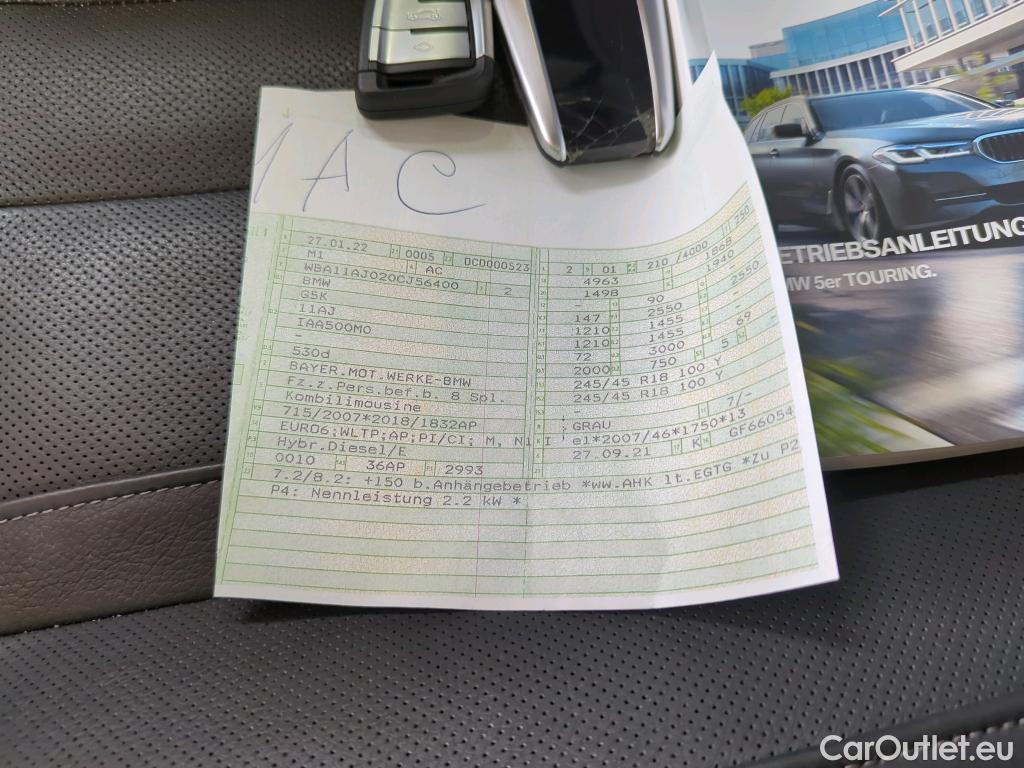 AC
27.01.22 0005 DCD000523
M1 AC
WBA11AJ020CJ56400 2
BMW
G5K
11AJ
IAA500M0
-
530d
BAYER.MOT.WERKE-BMW
Fz.z.Pers.bef.b. 8 Spl.
Kombilimousine
715/2007*2018/1832AP
EURO6;WLTP;AP;PI/CI; M, N1 I
Hybr.Diesel/E
0010 36AP 2993
2 01 210 /4000 250
4963 1868
1498 1940
- 90 2550
147 2550 -
1210 1455
1210 1455 69
72 3000
2000 750 5
245/45 R18 100 Y
245/45 R18 100 Y
- 7/-
GRAU
e1*2007/46*1750*13
27.09.21 K GF66054
7.2/8.2: +150 b.Anhängebetrieb *ww.AHK lt.EGTG *Zu P2
P4: Nennleistung 2.2 kW *
ETRIEBSANLEITUNG
MW 5er TOURING.
CarOutlet.eu